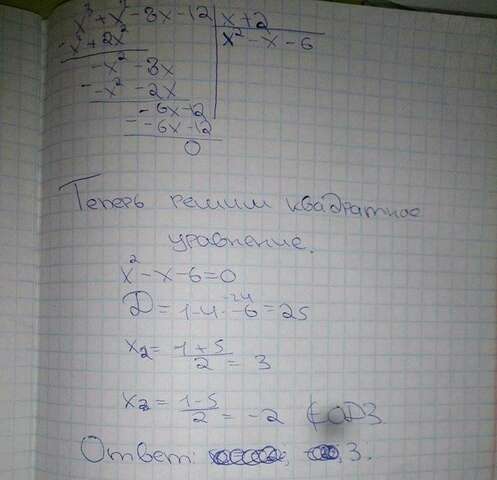 x³ + x² - 8x - 12 | x + 2
- x³ + 2x² | x² - x - 6
- x² - 8x
- - x² - 2x
- 6x - 12
- - 6x - 12
0
Теперь решим квадратное
уравнение.
x² - x - 6 = 0
D = 1 - 4 · -6 = 25
-24
x₂ = 1 + 5 / 2 = 3
x₂ = 1 - 5 / 2 = -2 ∉ ОДЗ
Ответ: 3.